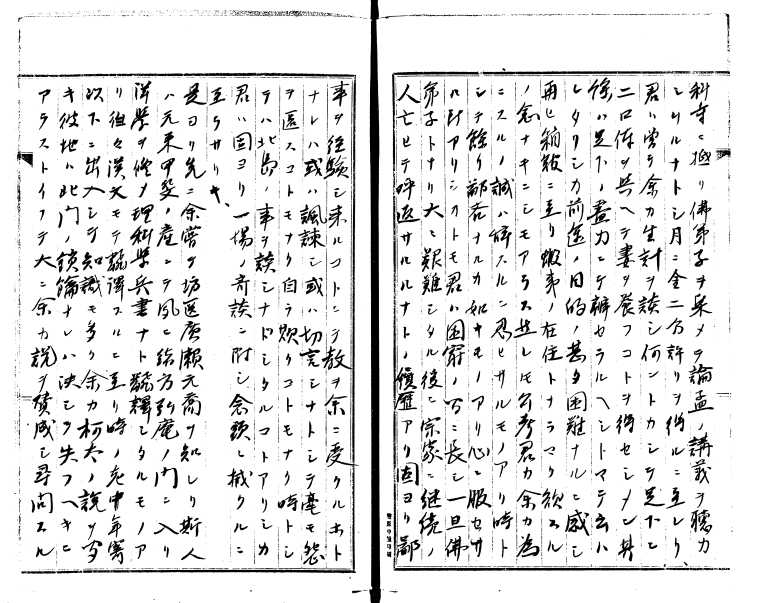 科寺ニ極リ佛弟子ヲ集メテ論孟ノ講義ヲ聽カ
シムルナトシ月ニ金二分許リヲ得ルニ至レリ
君ハ嘗テ余カ生計ヲ談シ何ントカシテ足下ヒ
二口俸ヲ與ヘテ妻ヲ養フコトヲ得セシメン其
餘ハ足下ノ盡力ニテ辨セラルヘシトマテ云ハ
レタリシカ前途ノ目的ノ甚タ困難ナルニ感シ
再ヒ箱館ニ至リ蝦夷ノ在住トナラマク欲スル
ノ念ナキニシモアラス然レモ公考君カ余カ為
ニスルノ誠ハ辞スルニ忍ヒサルモノアリ時ト
シテ餘リ鄙吝ナルカ如キモノアリ心ニ服セサ
ル所アリシカトモ君ハ困窮ノ中ニ長シ一旦佛
弟子トナリ大ニ艱難シタル後ニ宗家ニ継続ノ
人亡セテ呼返サルルナトノ傾アリ固ヨリ鄙
事ヲ経驗シ来ルコトニテ教ヲ余ニ受クルホト
ナレハ或ハ諷諫シ或ハ切言シナトシテ毫モ怨
ヲ匿スコトモナク自ラ欺クコトモナク時トシ
テハ北島ノ事ヲ談シナドシタルコトアリシカ
君ハ固ヨリ一場ノ奇談ニ附シ念頭ニ掛クルニ
至ラサリキ
是ヨリ先ニ余嘗テ坊医廣瀬元喬ヲ知レリ斯人
ハ元来甲斐ノ産ニテ夙ニ緒方弘庵ノ門ニ入リ
洋學ヲ修メ理科學兵書ナト飜釋シタルモノア
リ往々漢文モテ飜譯スルニ至リ時ノ老中年寄
以下ニ出入シテ知識モ多ク余カ柯太ノ説ヲ寄
キ彼地ハ北門ノ鎖鑰ナレハ決シテ失フヘキニ
アラストイフテ大ニ余カ説ヲ賛成シ尋問スル